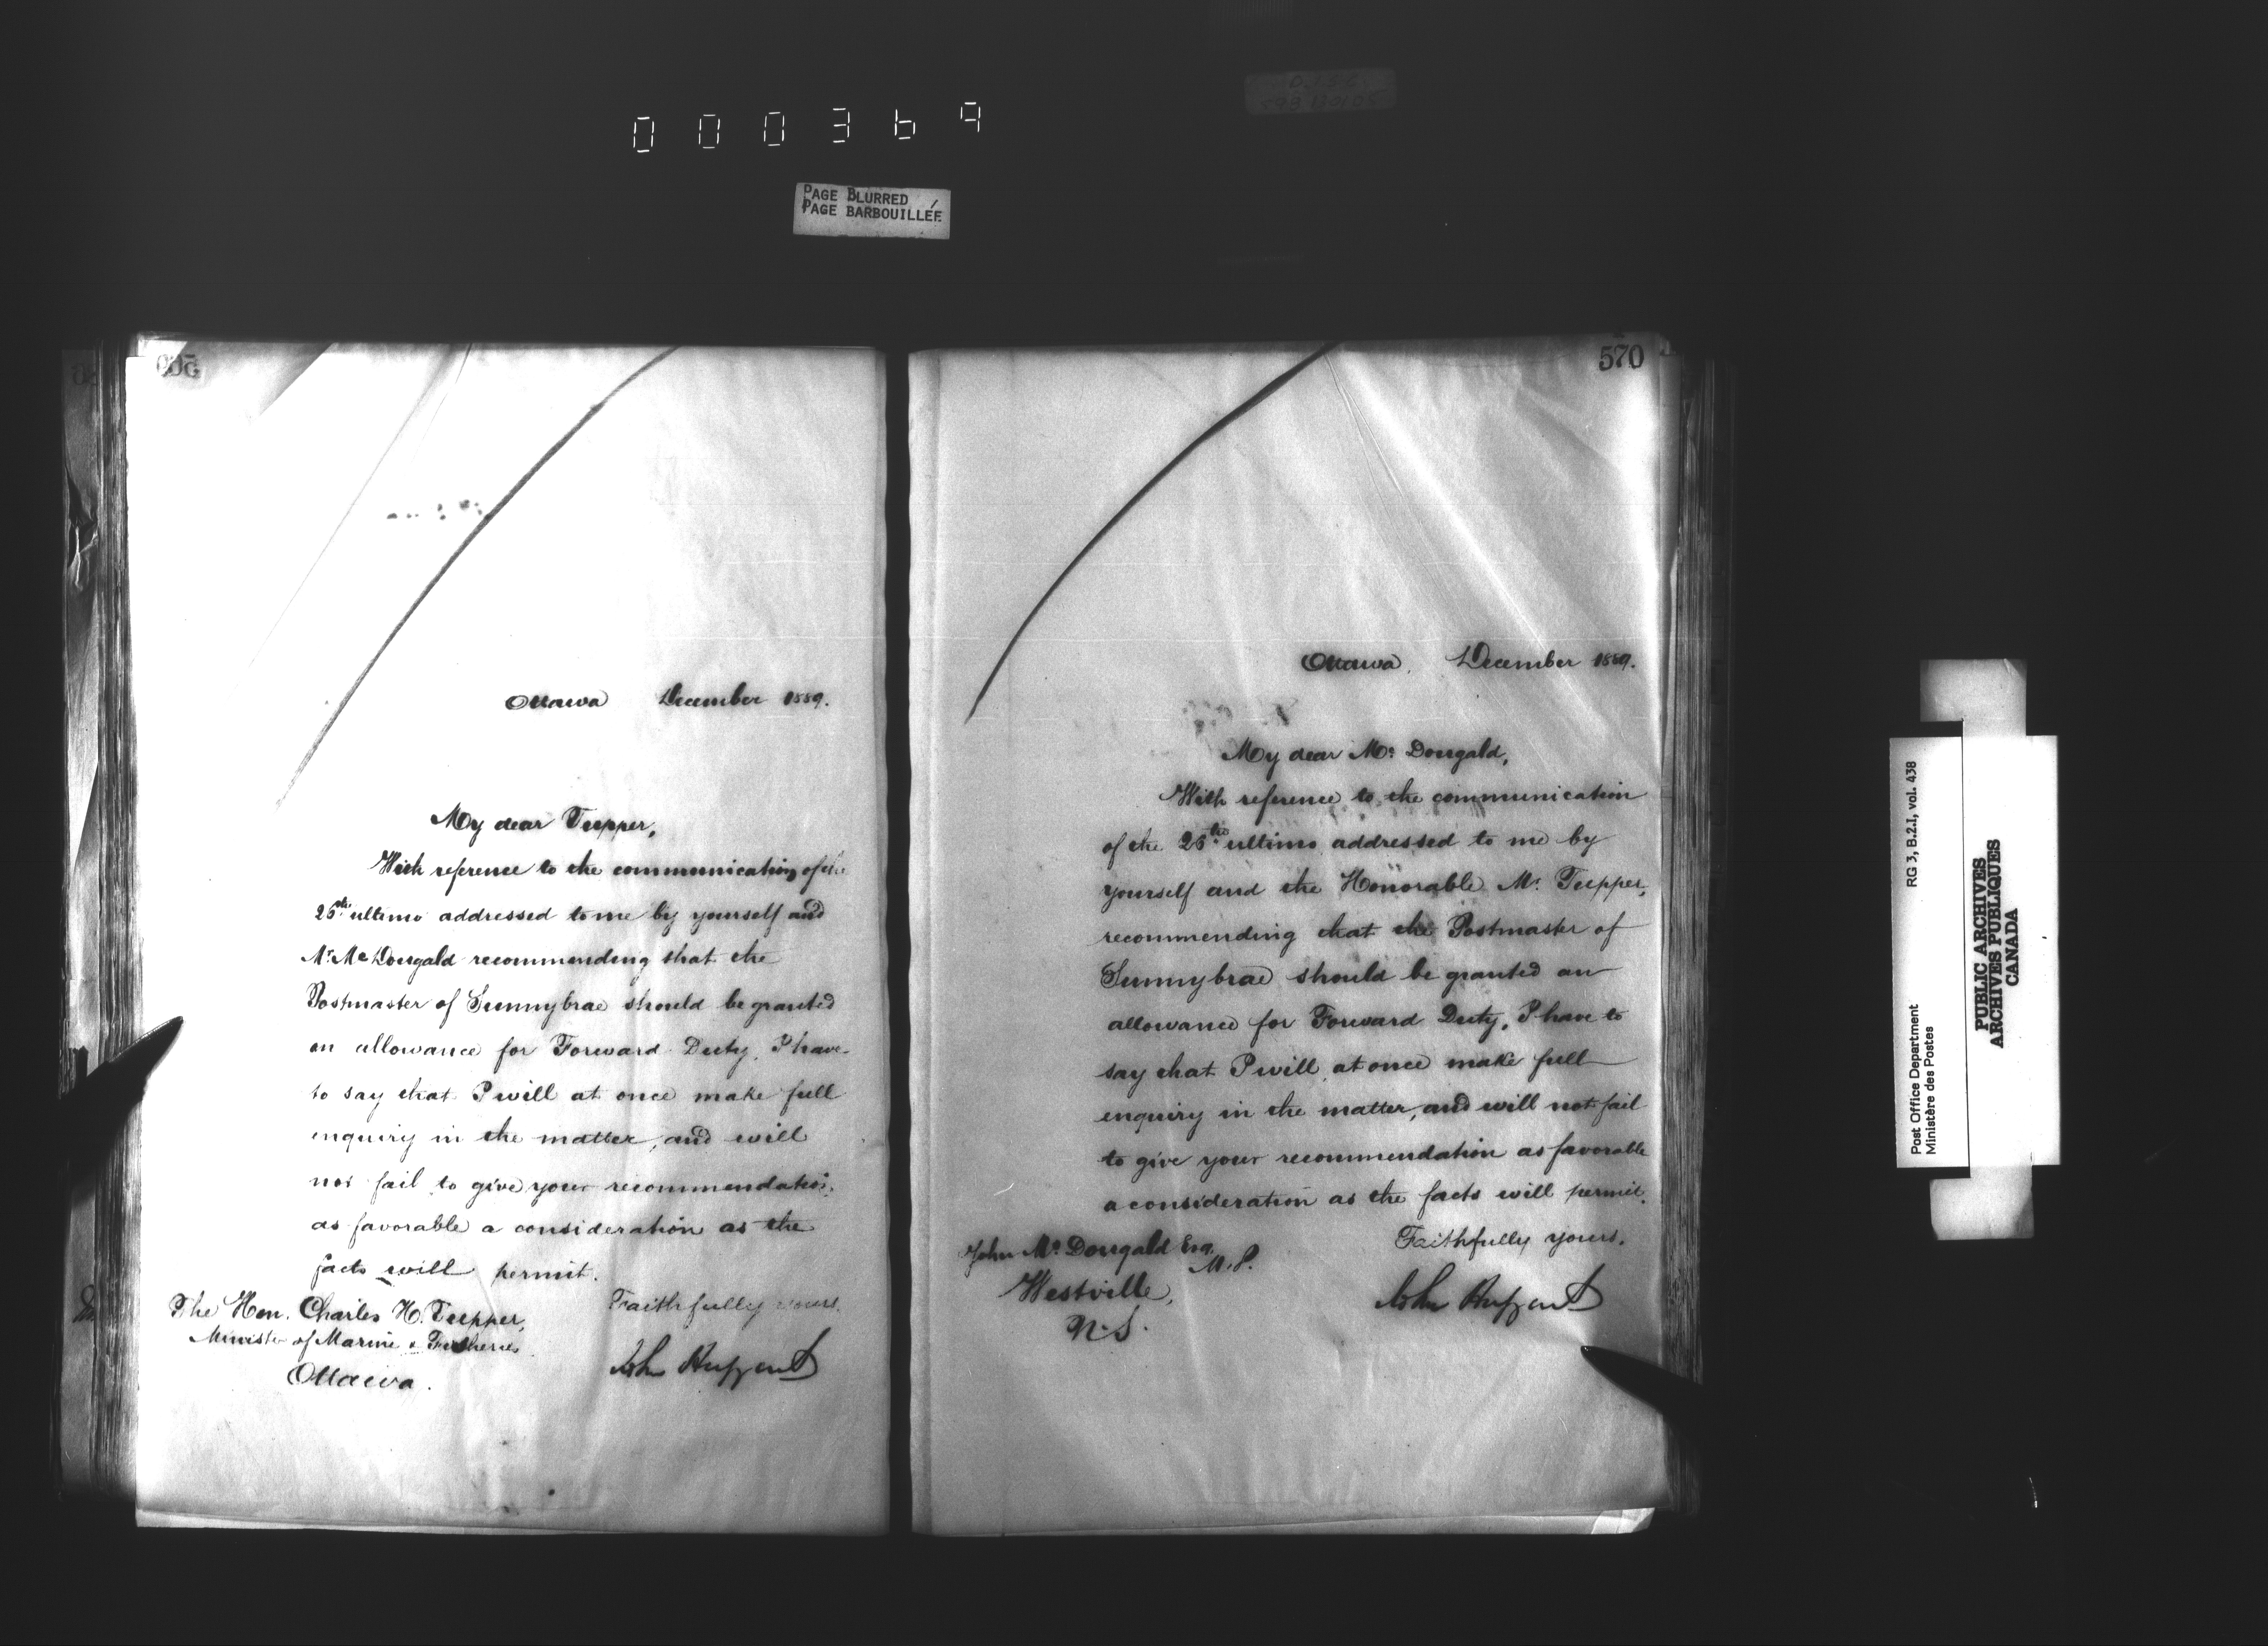 000369
PAGE BLURRED
PAGE BARBOUILLÉE
Ottawa December 1889.
My dear Tupper,
With reference to the communication of the
26th ultimo addressed to me by yourself and
Mr. McDougald recommending that the
Postmaster of Sunnybrae should be granted
an allowance for Forward Duty, I have
to say that I will at once make full
enquiry in the matter, and will
not fail to give your recommendation
as favorable a consideration as the
facts will permit.
Faithfully yours,
The Hon. Charles H. Tupper,
Minister of Marine & Fisheries
Ottawa.
John Haggart
570
Ottawa, December 1889.
My dear Mc Dougald,
With reference to the communication
of the 26th ultimo addressed to me by
yourself and the Honorable Mr. Tupper,
recommending that the Postmaster of
Sunnybrae should be granted an
allowance for Forward Duty, I have to
say that I will at once make full
enquiry in the matter, and will not fail
to give your recommendation as favorable
a consideration as the facts will permit.
Faithfully yours,
John Mc Dougald Esq.
M.P.
Westville,
N.S.
John Haggart
Post Office Department RG 3, B.2.I, vol. 438
Ministère des Postes
PUBLIC ARCHIVES
ARCHIVES PUBLIQUES
CANADA